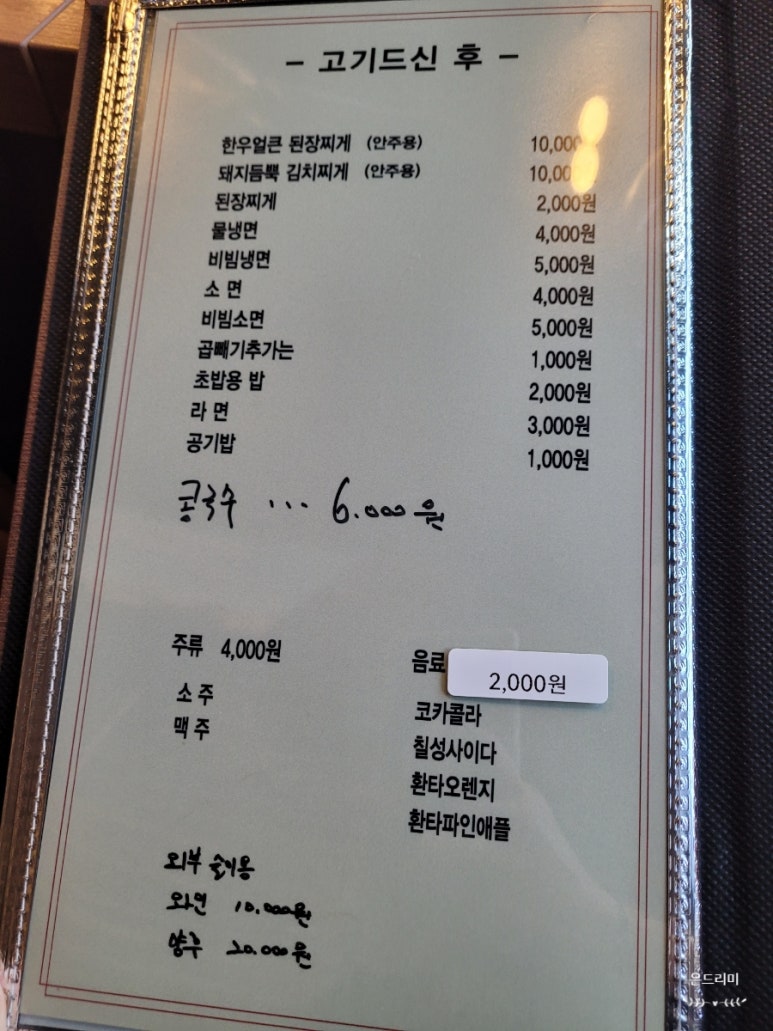 - 고기드신 후 -
한우얼큰 된장찌게 (안주용) 10,000
돼지듬뿍 김치찌게 (안주용) 10,00
된장찌게 2,000원
물냉면 4,000원
비빔냉면 5,000원
소 면 4,000원
비빔소면 5,000원
곱빼기추가는 1,000원
초밥용 밥 2,000원
라 면 3,000원
공기밥 1,000원
콩국수 ... 6.000원
주류 4,000원
소 주
맥 주
음료 2,000원
코카콜라
칠성사이다
환타오렌지
환타파인애플
외부 술이용
와인 10.000원
양주 20.000원
은드리미